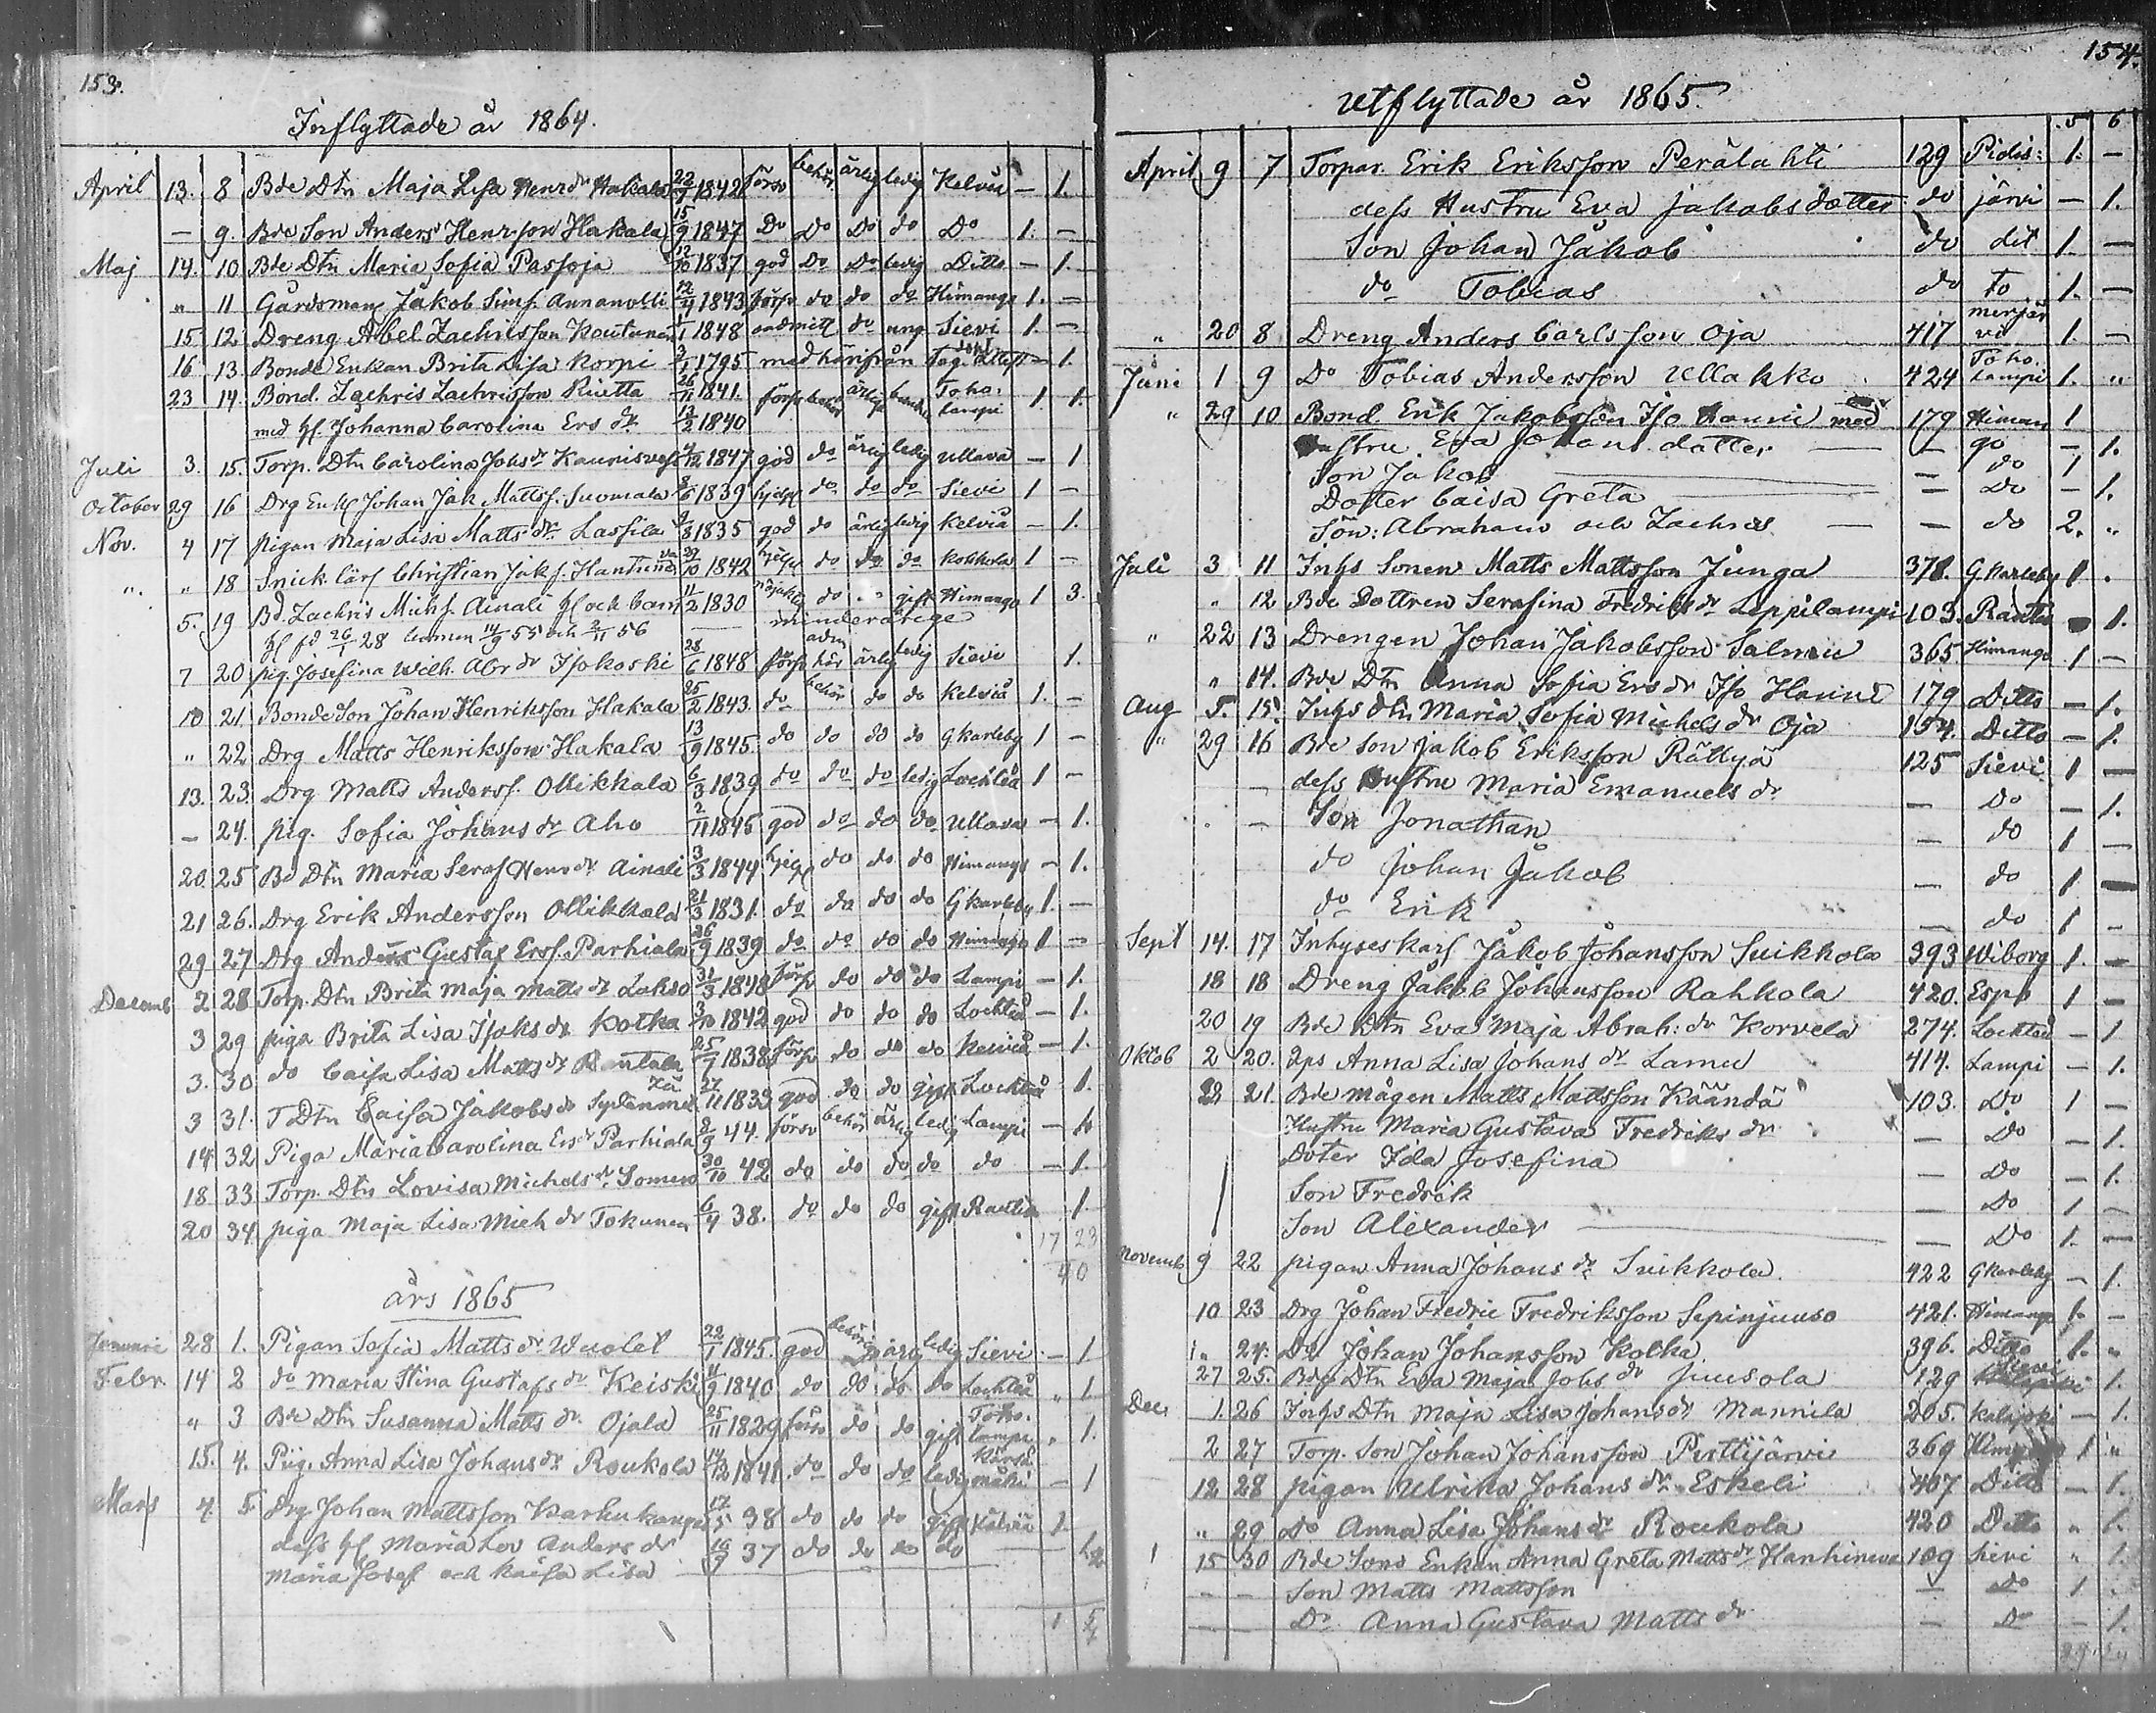 153.
Inflyttade år 1864.
April 13. 8 Bde Dtn Maja Lisa Henr dr Hakala 22/7 1842 försv behör. ärlig ledig Kelviå — 1.
— 9. Bde Son Anders Henr-son Hakala 15/9 1847 Do Do Do do Do 1. —
Maj 14. 10 Bde Dtn Maria Sofia Passoja 12/10 1837 god Do Do ledig Ditto — 1.
" 11 Gårdsman Jakob Simf. Annanolli 12/4 1843 försv do do do Himango 1. —
15 12 Dreng Abel Zachrisson Koutunen 1/1 1848 oadmitt do ung Sievi 1. —
16 13. Bonde Enkan Brita Lisa Korpi 1795 med härifrån tag. — 1.
23 14. Bond. Zachris Zachrisson Riutta 26/11 1841. försv behör ärlig Toholampi 1. 1.
med hf. Johanna Carolina Ers dr 13/2 1840
Juli 3. 15. Torp. Dtn Carolina Johs dr 4/12 1847 god do ärlig ledig Ullava — 1
October 29 16 Drg Johan Jak Mattsf. Suomala 1839 hjelpl do do do Sievi 1 —
Nov. 4 17 pigan Maja Lisa Matts dr Lassila 1835 god do ärlig ledig Kelviå — 1.
" " 18 Snick. lärl Christian Jak f. 29/10 1842 hjelpl do do do Kokkola 1 —
5. 19 Bd. Zachris Michf. Ainali hf och barn 11/2 1830 do gift Himango 1 3.
hf fd 26/1 28 14/9 55 och 2/11 56 — minderårige
7 20 pig. Josefina Wilh. Abr dr Isokoski 28/6 1848 försv adm här ärlig ledig Sievi 1.
10 21 Bonde Son Johan Henriksson Hakala 25/2 1843. do behör do do Kelviå 1. —
" 22 Drg Matts Henriksson Hakala 13/9 1845. do do do do Gkarleby 1 —
13. 23. Drg Matts Andersf. Ollikkala 6/3 1839 do do do ledig Lochteå 1 —
— 24. pig. Sofia Johans dr Aho 2/11 1845 god do do do Ullava — 1.
20. 25 Bd Dtn Maria Seraf Henr dr Ainali 3/3 1844 hjelpl do do do Himango — 1.
21 26. Drg Erik Andersson Ollikkala 21/3 1831. do do do do Gkarleby 1. —
29 27 Drg Anders Gustaf Ersf. Parhiala 26/9 1839 do do do do Himango 1 —
Decemb 2 28 Torp. Dtn Brita Maja Matts dr Lakso 31/3 1848 försv do do do Lampi — 1.
3 29 piga Brita Lisa Isaks dr Kotka 3/10 1842 god do do do Lochteå — 1.
3. 30 do Caisa Lisa Matts dr Rantala 25/9 1838 försv do do do Kelviå — 1.
3 31. T Dtn Caisa Jakobs dr 27/11 1833 god do do gift Lochteå 1.
14 32 Piga Maria Carolina Ers dr Parhiala 8/9 44. försv behör ärlig ledig Lampi — 1.
18 33 Torp. Dtn Lovisa Michels dr Somero 30/10 42 do do do do do — 1.
20 34 piga Maja Lisa Mich dr Tokunen 6/4 38. do do do gift Rautio 1.
17 23
40
års 1865
Januari 28 1. Pigan Sofia Matts dr Wuolet 22/1 1845. god behörig ärlig ledig Sievi — 1
Febr. 14 2 do Maria Stina Gustafs dr Keiski 11/9 1840 do do do do Lochteå " 1
" 3 Bde Dtn Susanna Matts dr Ojala 25/11 1829 försv do do gift Toholampi " 1.
15. 4. Pig. Anna Lisa Johans dr Roukola 14/12 1841. do do do ledig Kärsämäki — 1
Mars 4. 5 Drg Johan Mattsson Karhukangas 17/5 38 do do do gift Kelviå 1.
dess hf Maria Lov Anders dr 37 do do do do — 1.
Maria Josef och Kaisa Lisa — 2
1 5
154.
Utflyttade år 1865.
5 6
April 9 7 Torpar. Erik Eriksson Perälahti 129 Pidis: 1. —
dess Hustru Eva Jakobsdotter do järvi — 1.
Son Johan Jakob do dit 1. —
do Tobias do to 1. —
" 20 8 Dreng Anders Carlsson Oja 417 1. —
Juni 1 9 Do Tobias Andersson Ullakko 424 Toholampi 1. "
" 29 10 Bond. Erik Jakobsson Iso Hanni med 179 Himan 1
Hustru Eva Johans dotter — — go — 1.
Son Jakob — — do 1
Dotter Caisa Greta — — Do — 1.
Sön: Abraham och Zachris — — do 2. "
Juli 3 11 Inhs Sonen Matts Mattsson Junga 378. Gkarleby 1 .
" 12 Bde Dottren Serafina Fredriks dr Leppilampi 103. Rautio 1.
" 22 13 Drengen Johan Jakobsson Salmu 365 Himango 1 —
" 14. Bde Dtn Anna Sofia Ers dr Iso Hanni 179 Ditto — 1.
Aug 5. 15. Inhs dtn Maria Sofia Michels dr Oja 154. Ditto — 1.
" 29 16 Bde Son Jakob Eriksson Rättyä 125 Sievi 1 —
— dess Hustru Maria Emanuels dr — Do — 1.
— Son Jonathan — do 1 —
do Johan Jakob — do 1 —
do Erik — do 1 —
Sept 14. 17 Inhyseskarl Jakob Johansson Suikkola 393 Wiborg 1. —
18 18 Dreng Jakob Johansson Rahkola 420. Espo 1 —
20 19 Bde Dtn Eva Maja Abrah: dr Korvela 274. Lochteå — 1
Oktob 2 20. Anna Lisa Johans dr Lamu 414. Lampi — 1.
22 21. Bde mågen Matts Mattsson Käändä 103. Do 1 —
Hustru Maria Gustava Fredriks dr — Do — 1.
Doter Ida Josefina — Do — 1.
Son Fredrik — Do 1 —
Son Alexander — — Do 1. —
Novemb 9 22 pigan Anna Johans dr Suikkola. 422 Gkarleby — 1.
10 23 Drg Johan Fredric Fredriksson Sepinjuuso 421. Himango 1. —
" 24. Do Johan Johansson Kotka 396. Ditto 1. "
27 25. Bde Dtn Eva Maja Johs dr Juusola 129 Sievi 1.
Dec. 1. 26 Inhs Dtn Maja Lisa Johans dr Mannila 205. Kalajoki — 1.
2 27 Torp. Son Johan Johansson Pirttijärvi 369 1 "
12 28 pigan Ulrika Johans dr Eskeli 407 Ditto — 1.
" 29 Do Anna Lisa Johans dr Roukola 420 Ditto " 1.
15 30 Bde Sons Enkan Anna Greta Matts dr Hanhineva 109 Sievi " 1.
— — Son Matts Mattsson — Do 1 .
— — Do Anna Gustava Matts dr — Do — 1.